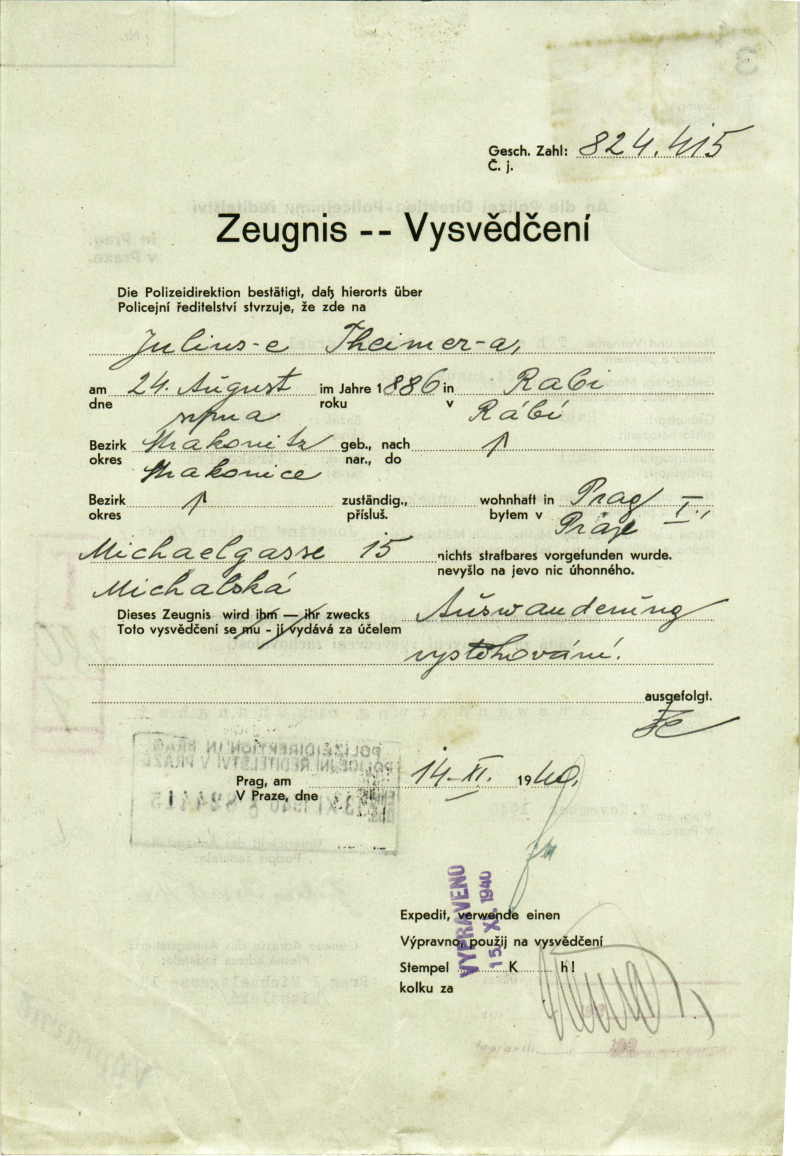 Gesch. Zahl: 824.415
Č. j.
Zeugnis -- Vysvědčení
Die Polizeidirektion bestätigt, daß hierorts über
Policejní ředitelství stvrzuje, že zde na
Julius-e Theimer-a,
am 24. August im Jahre 1886 in Rabi
dne srpna roku v Rábí
Bezirk Strakonitz geb., nach
okres Strakonice nar., do
Bezirk zuständig., wohnhaft in Prag I.,
okres přísluš. bytem v Praze
Michaelgasse 15 nichts strafbares vorgefunden wurde.
Michalská nevyšlo na jevo nic úhonného.
Dieses Zeugnis wird ihm — ihr zwecks Auswanderung
Toto vysvědčení se mu - jí vydává za účelem vystěhování.
ausgefolgt.
POLIZEIDIREKTION IN PRAG
POLICEJNÍ ŘEDITELSTVÍ V PRAZE
Prag, am 14. XI. 1940.
V Praze, dne
VYPRAVENO
15. XI. 1940
Expedit, verwende einen
Výpravno, použij na vysvědčení
Stempel K h!
kolku za